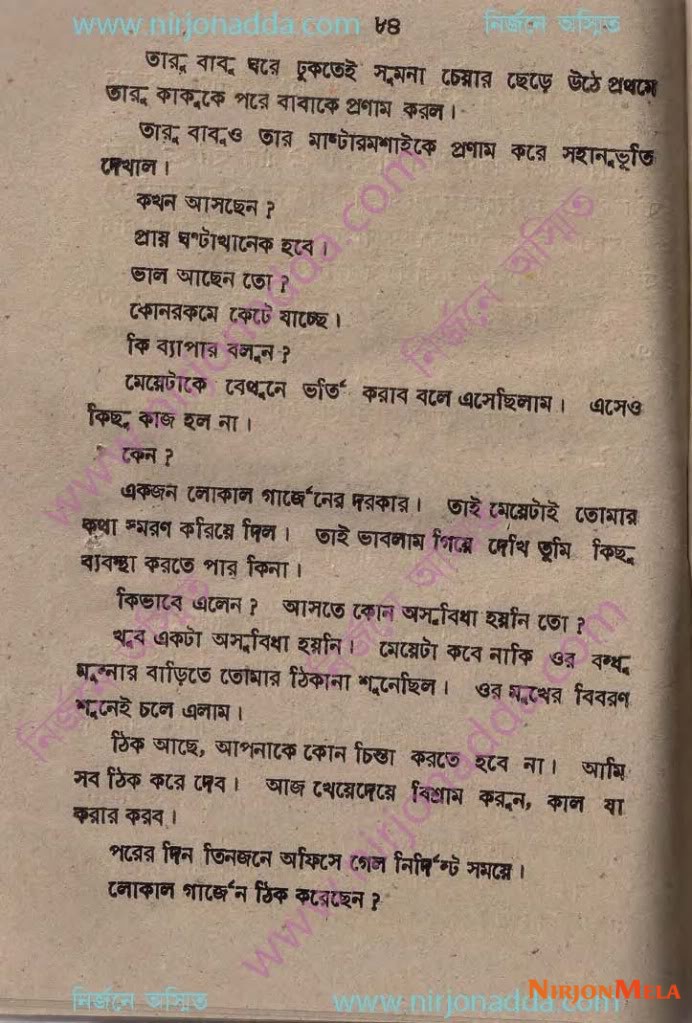 www.nirjonadda.com ৮৪ নির্জনে অস্মিত
তারু বাবু ঘরে ঢুকতেই সুমনা চেয়ার ছেড়ে উঠে প্রথমে
তারু কাকুকে পরে বাবাকে প্রণাম করল।
তারু বাবুও তার মাষ্টারমশাইকে প্রণাম করে সহানুভূতি
দেখাল।
কখন আসছেন?
প্রায় ঘণ্টাখানেক হবে।
ভাল আছেন তো?
কোনরকমে কেটে যাচ্ছে।
কি ব্যাপার বলুন?
মেয়েটাকে বেথুনে ভর্তি করাব বলে এসেছিলাম। এসেও
কিছু কাজ হল না।
কেন?
একজন লোকাল গার্জেনের দরকার। তাই মেয়েটাই তোমার
কথা স্মরণ করিয়ে দিল। তাই ভাবলাম গিয়ে দেখি তুমি কিছু
ব্যবস্থা করতে পার কিনা।
কিভাবে এলেন? আসতে কোন অসুবিধা হয়নি তো?
খুব একটা অসুবিধা হয়নি। মেয়েটা কবে নাকি ওর বন্ধু
মুন্নার বাড়িতে তোমার ঠিকানা শুনেছিল। ওর মুখের বিবরণ
শুনেই চলে এলাম।
ঠিক আছে, আপনাকে কোন চিন্তা করতে হবে না। আমি
সব ঠিক করে দেব। আজ খেয়েদেয়ে বিশ্রাম করুন, কাল যা
করার করব।
পরের দিন তিনজনে অফিসে গেল নির্দিষ্ট সময়ে।
লোকাল গার্জেন ঠিক করেছেন?
নির্জনে অস্মিত www.nirjonadda.com
NIRJONMELA
www.nirjonadda.com
নির্জনে অস্মিত
নির্জনে অস্মিত
নির্জনে অস্মিত
www.nirjonadda.com